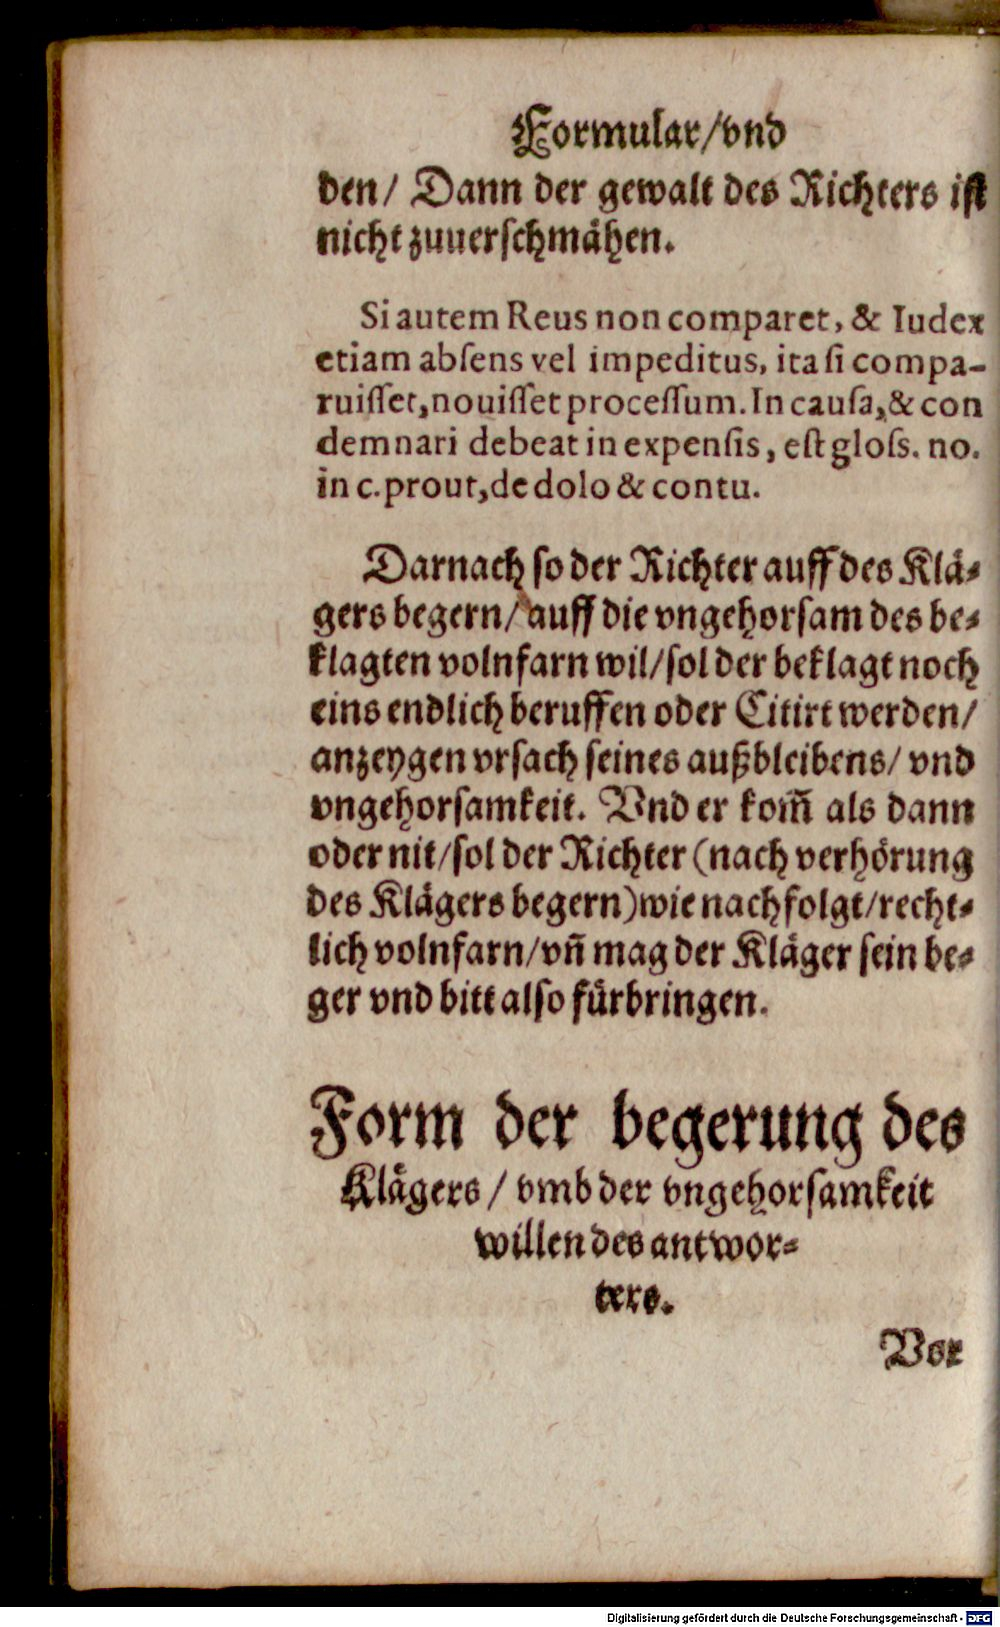 Formular/vnd
den/ Dann der gewalt des Richters ist
nicht zuuerschmähen.
Si autem Reus non comparet, & Iudex
etiam absens vel impeditus, ita si compa-
ruisset, nouisset processum. In causa, & con
demnari debeat in expensis, est gloss. no.
in c. prout, de dolo & contu.
Darnach so der Richter auff des Klä-
gers begern/ auff die vngehorsam des be-
klagten volnfarn wil/ sol der beklagt noch
eins endlich beruffen oder Citirt werden/
anzeygen vrsach seines außbleibens/ vnd
vngehorsamkeit. Vnd er kom̃ als dann
oder nit/ sol der Richter (nach verhörung
des Klägers begern) wie nachfolgt/ recht-
lich volnfarn/ vñ mag der Kläger sein be-
ger vnd bitt also fürbringen.
Form der begerung des
Klägers/ vmb der vngehorsamkeit
willen des antwor-
ters.
Vor
Digitalisierung gefördert durch die Deutsche Forschungsgemeinschaft - DFG